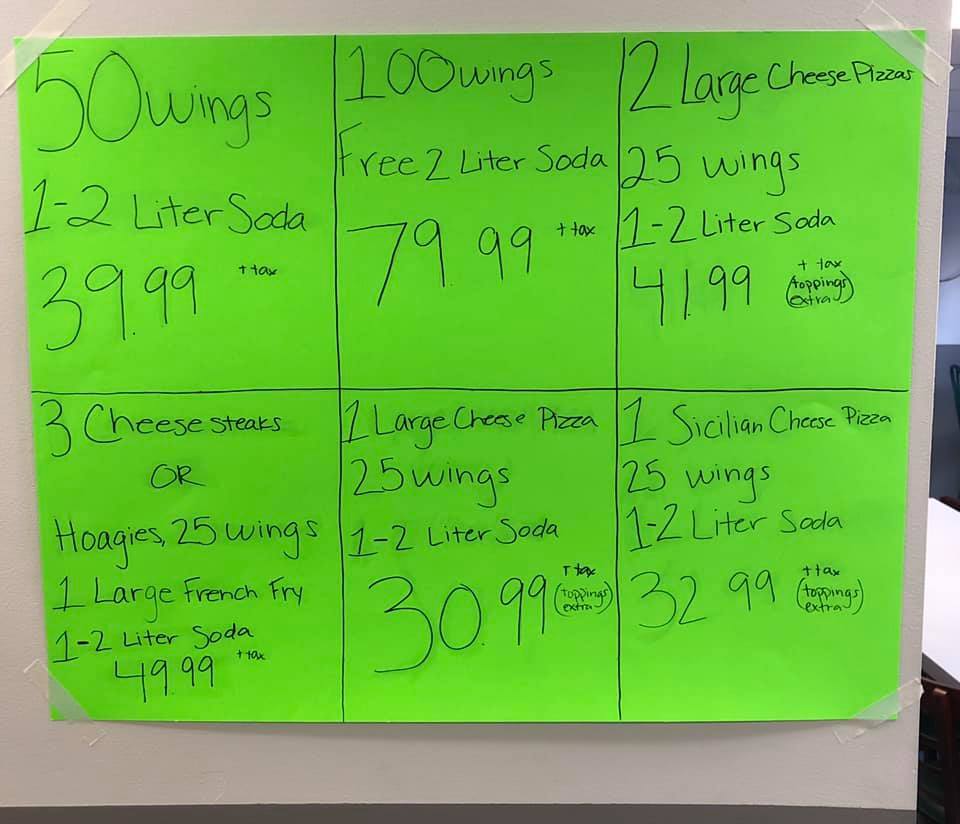 50 wings
1-2 Liter Soda
39.99 + tax
100 wings
Free 2 Liter Soda
79.99 + tax
2 Large Cheese Pizzas
25 wings
1-2 Liter Soda
41.99 + tax
(toppings
extra)
3 Cheesesteaks
OR
Hoagies, 25 wings
1 Large French Fry
1-2 Liter Soda
49.99 + tax
1 Large Cheese Pizza
25 wings
1-2 Liter Soda
30.99 + tax
(toppings
extra)
1 Sicilian Cheese Pizza
25 wings
1-2 Liter Soda
32 99 + tax
(toppings
extra)